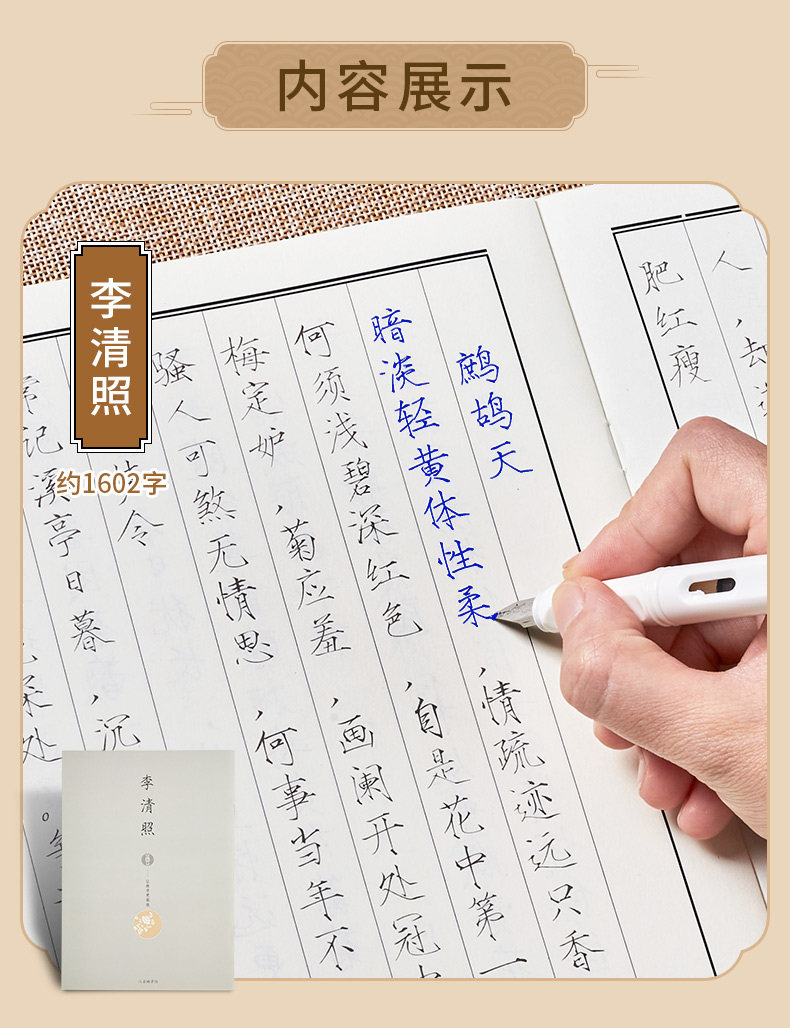 内容展示
李清照
约1602字
人，却
肥红瘦
鹧鸪天
暗淡轻黄体性柔，情疏迹远只香
何须浅碧深红色，自是花中第一
梅定妒，菊应羞，画阑开处冠
骚人可煞无情思，何事当年不
令
常记溪亭日暮，沉
处。
李清照